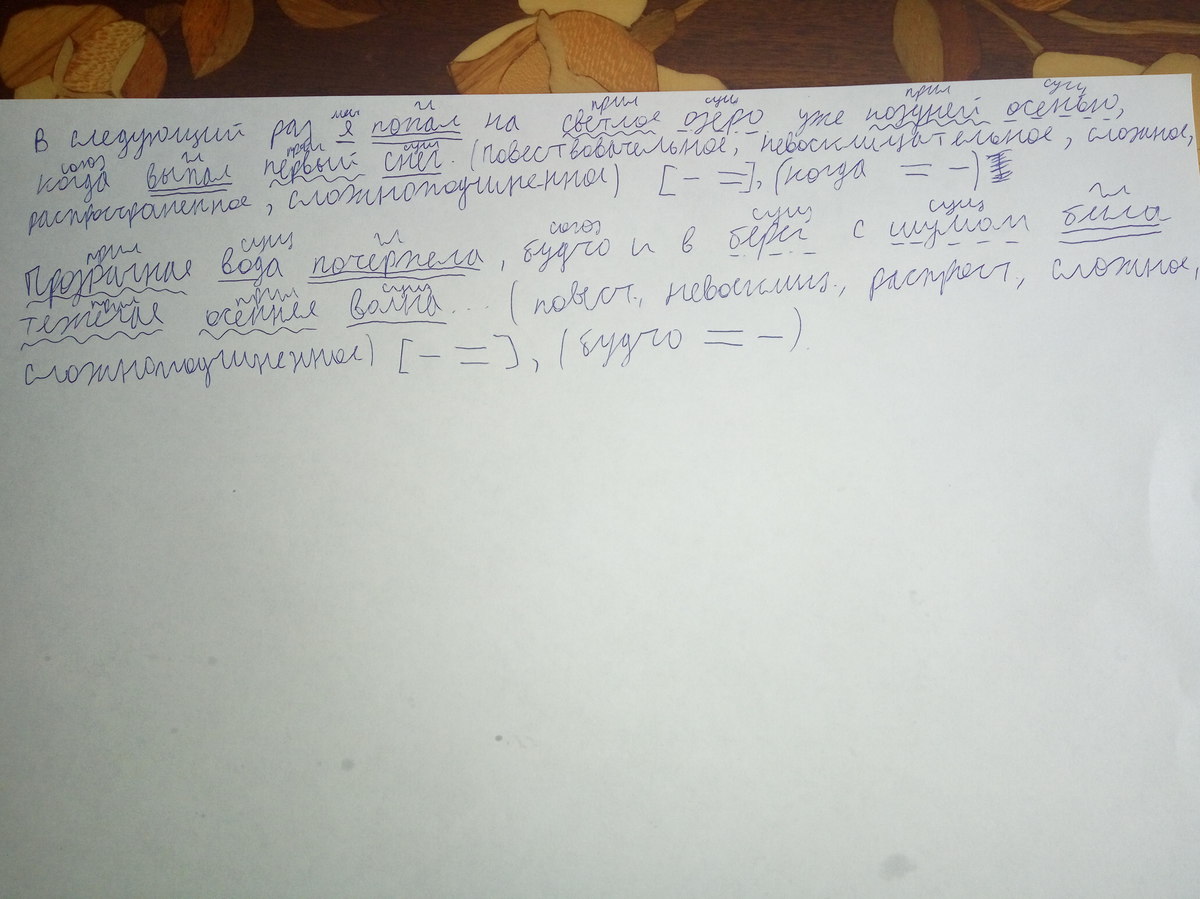 мест гл прил сущ прил сущ
В следующий раз я попал на светлое озеро уже поздней осенью,
союз гл прил сущ
когда выпал первый снег. (повествовательное, невосклицательное, сложное,
распространенное, сложноподчиненное) [- =], (когда = -)
прил сущ гл союз сущ сущ гл
Прозрачная вода почернела, будто и в берег с шумом била
прил прил сущ
тяжелая осенняя волна... (повест., невосклиц., распрост., сложное,
сложноподчиненное) [- =], (будто = -).